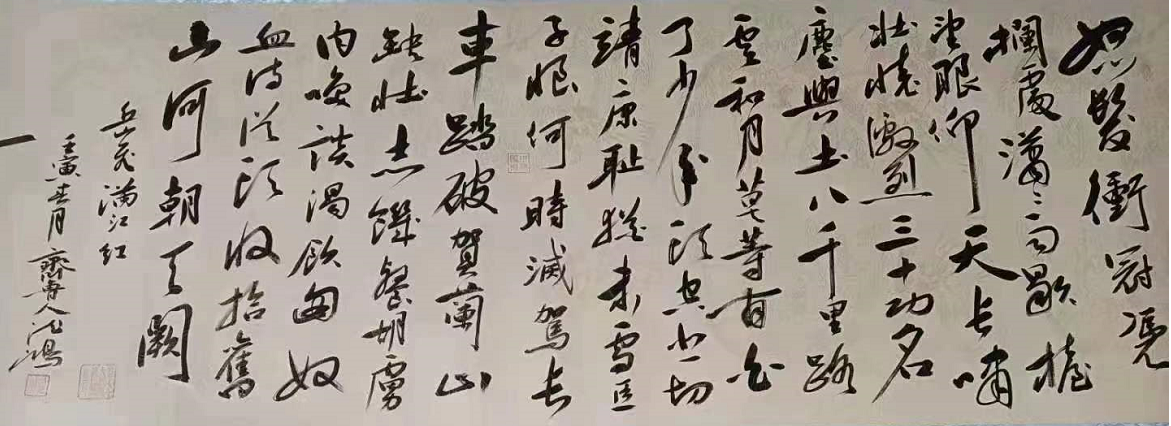 怒髮衝冠凭
欄處潇々雨歇擡
望眼仰天長嘯
壯懷激烈三十功名
塵與土八千里路
雲和月莫等閒白
了少年頭空悲切
靖康耻猶未雪臣
子恨何時滅駕長
車踏破賀蘭山
缺壯志饑餐胡虜
肉咲談渴飲匈奴
血待從頭收拾舊
山河朝天闕
岳飛滿江紅
壬寅春月齊魯人鴻